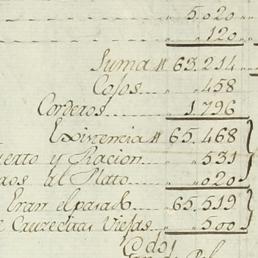 5.020
120
Suma # 63.214
Cojos 458
Corderos 1.796
Existencia # 65.468
uerto y Racion 531
al Plato 020
Eran el pasado 65.519
Cruzecitas Viejas 500